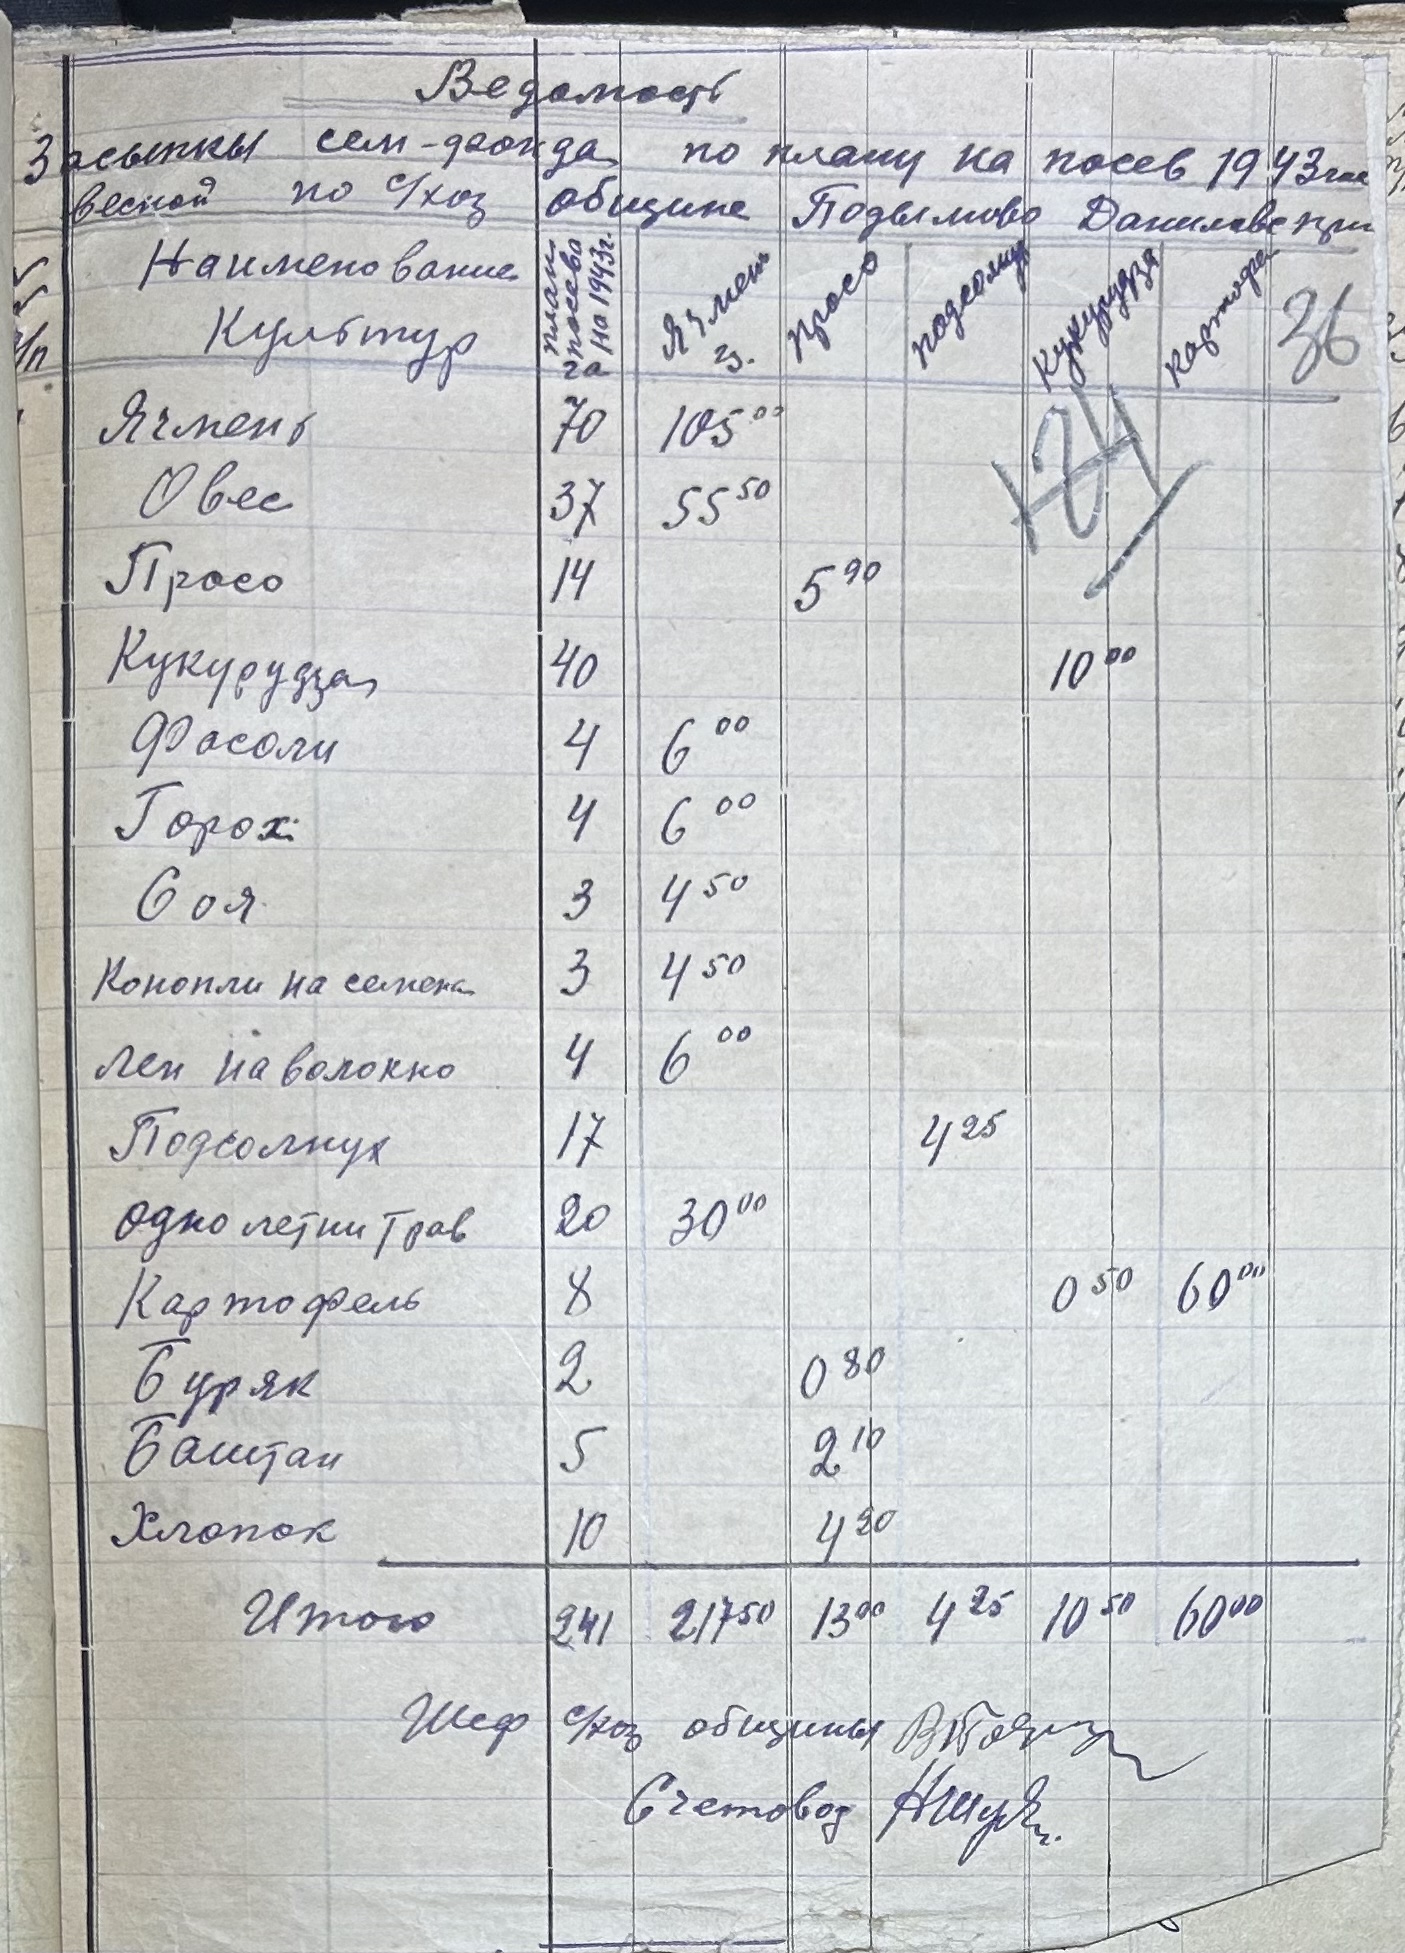 Ведомость
Засыпки сем-фонда по плану на посев 1943
весной по с/хоз общине Подымово
Наименование Культур план посева на 1943г. га Ячмень з. просо подсолнух Кукурудзя картофель 36
124
Ячмень 70 105 00
Овес 37 55 50
Просо 14 5 90
Кукурудза 40 10 00
Фасоли 4 6 00
Горох 4 6 00
Соя 3 4 50
Конопли на семена 3 4 50
лен на волокно 4 6 00
Подсолнух 17 4 25
однолетни трав 20 30 00
Картофель 8 0 50 60 00
Буряк 2 0 80
Баштан 5 2 10
Хлопок 10 4 20
Итого 241 217 50 13 00 4 25 10 50 60 00
Шеф с/хоз общины
Счетовод